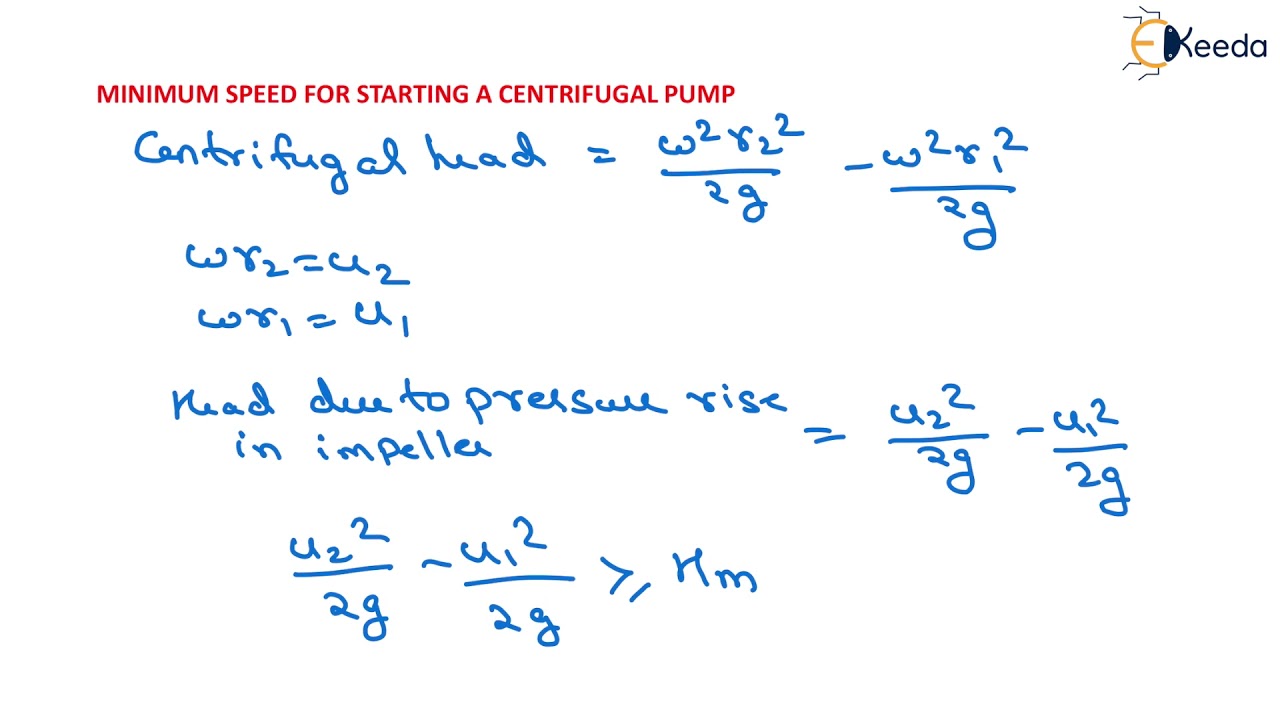 EKeeda
MINIMUM SPEED FOR STARTING A CENTRIFUGAL PUMP
Centrifugal head = ω²r₂²/2g - ω²r₁²/2g
ωr₂ = u₂
ωr₁ = u₁
Head due to pressure rise
in impeller = u₂²/2g - u₁²/2g
u₂²/2g - u₁²/2g ⩾ Hm